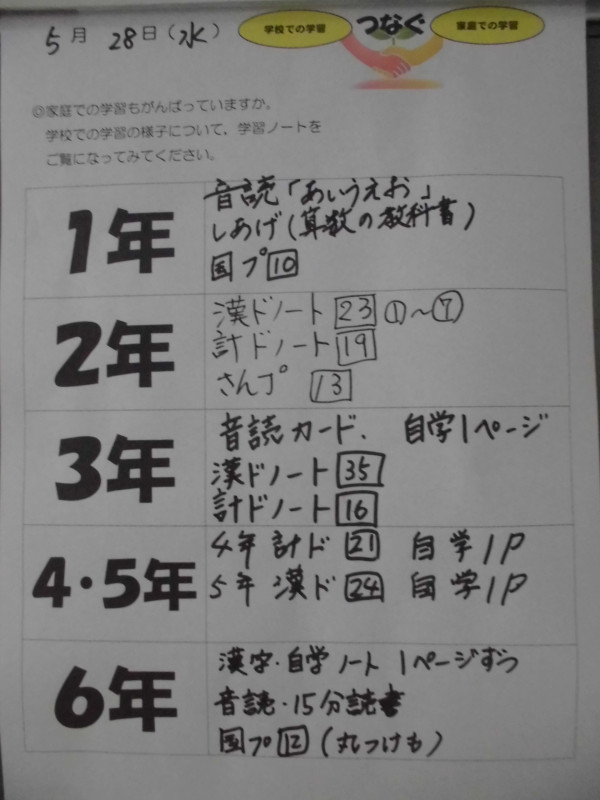 5月 28日(水)
学校での学習 つなぐ 家庭での学習
◎家庭での学習もがんばっていますか。
学校での学習の様子について、学習ノートを
ご覧になってみてください。
1年
音読「あいうえお」
しあげ(算数の教科書)
国プ 10
2年
漢ドノート 23 ①~⑦
計ドノート 19
さんプ 13
3年
音読カード、 自学1ページ
漢ドノート 35
計ドノート 16
4・5年
4年 計ド 21 自学1P
5年 漢ド 24 自学1P
6年
漢字・自学ノート 1ページずつ
音読・15分読書
国プ 12 (丸つけも)